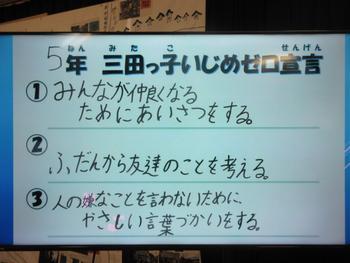 5年 三田っ子いじめゼロ宣言
ねん みたこ せんげん
① みんなが仲良くなる
ためにあいさつをする。
② ふだんから友達のことを考える。
③ 人の嫌なことを言わないために、
やさしい言葉づかいをする。